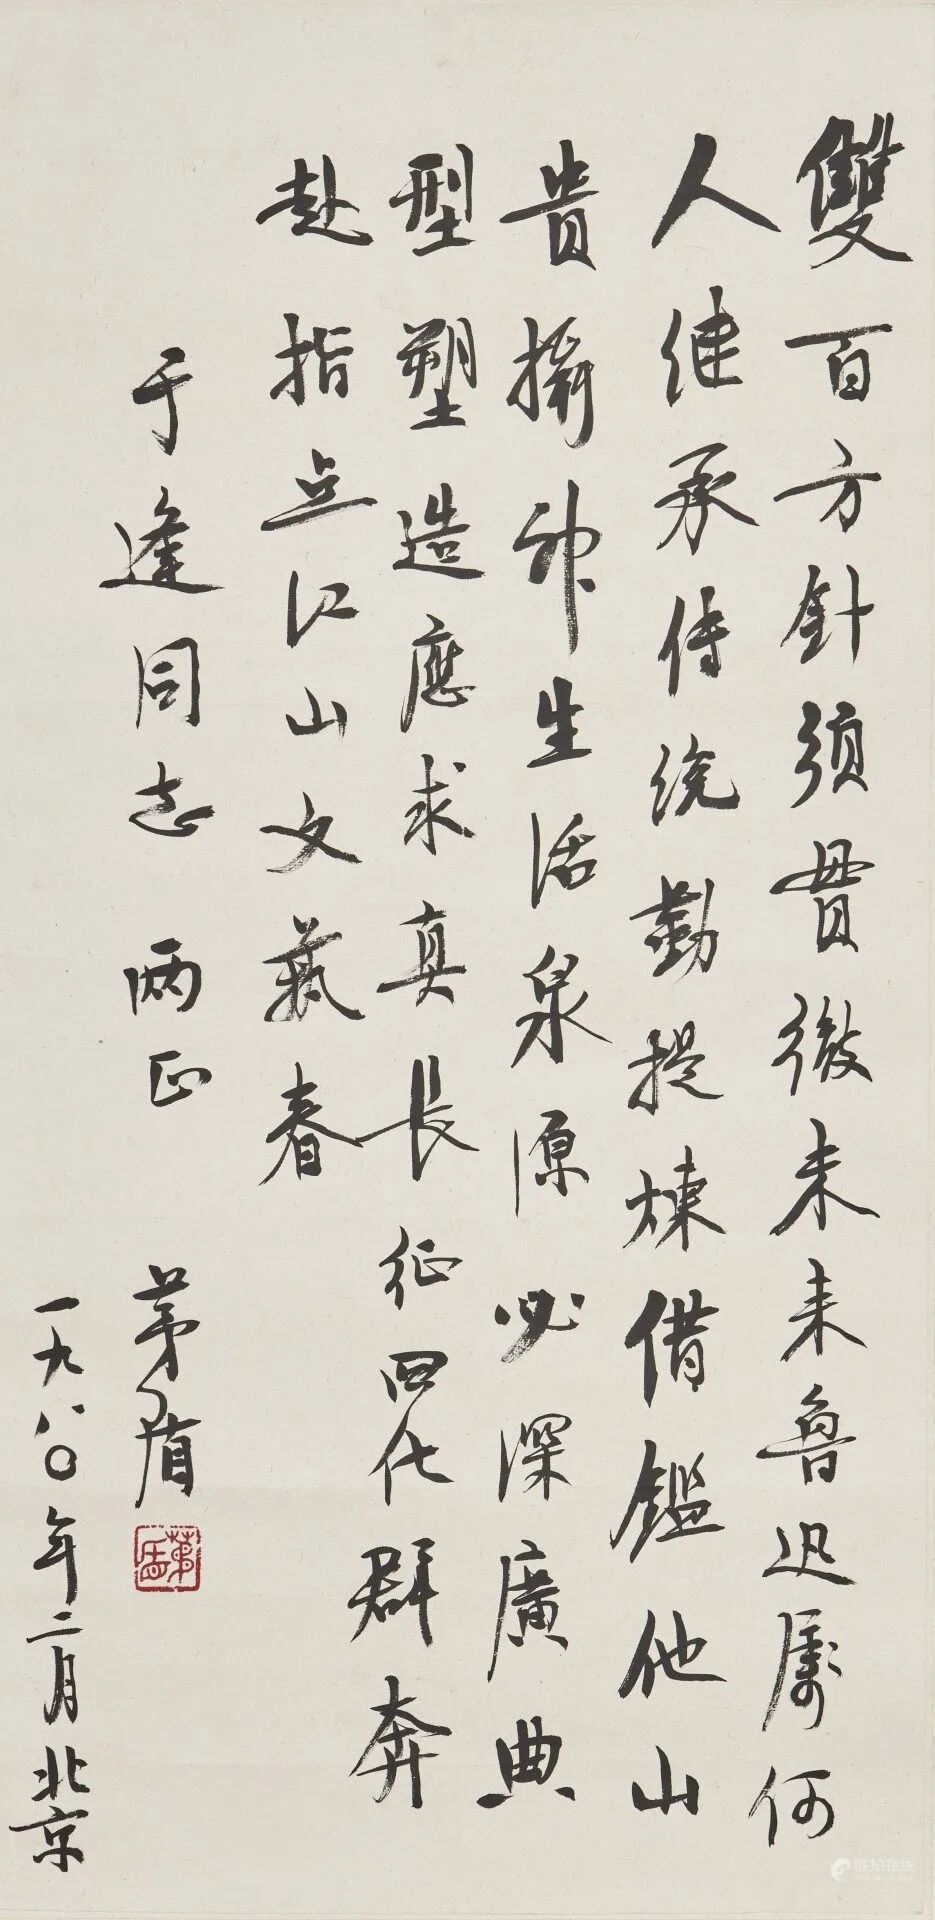 雙百方針須貫徹未来魯迅屬何
人继承传统勤提煉借鑑他山
貴神生活泉源必深廣典
型塑造應求真長征四化群奔
赴指点江山文藝春
于逢同志 两正 茅盾
茅盾
一九八〇年二月北京
联拍在线